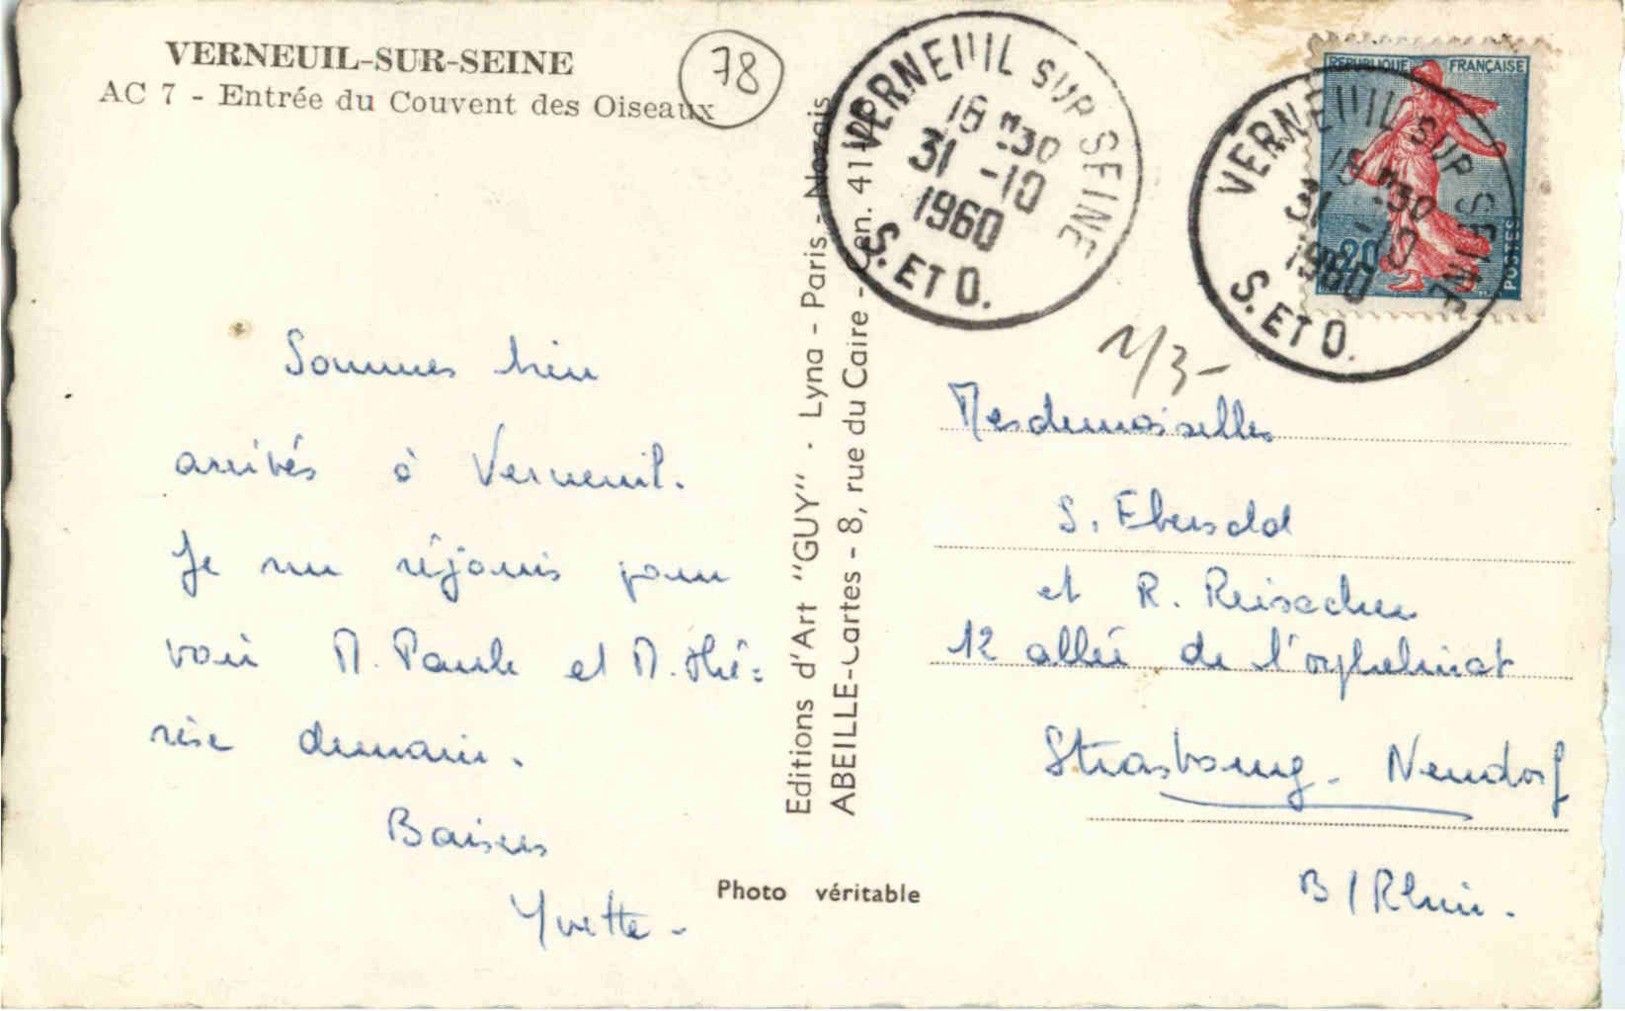 VERNEUIL-SUR-SEINE
AC 7 - Entrée du Couvent des Oiseaux
78
Sommes bien
arrivés à Verneuil.
Je me réjouis pour
voir M. Paule et M. Thé=
rèse demain.
Baisers
Yvette.
Photo véritable
Editions d'Art "GUY" - Lyna - Paris - Nozais
ABEILLE-Cartes - 8, rue du Caire - en. 41
VERNEUIL SUR SEINE
18 H 30
31 -10
1960
S. ET O.
VERNEUIL SUR SEINE
18 H 30
31 -10
1960
S. ET O.
REPUBLIQUE FRANÇAISE
0,20
POSTES
1/3-
Mesdemoiselles
S. Ebersold
et R. Reisacher
12 allée de l'orphelinat
Strasbourg - Neudorf
B/Rhin.